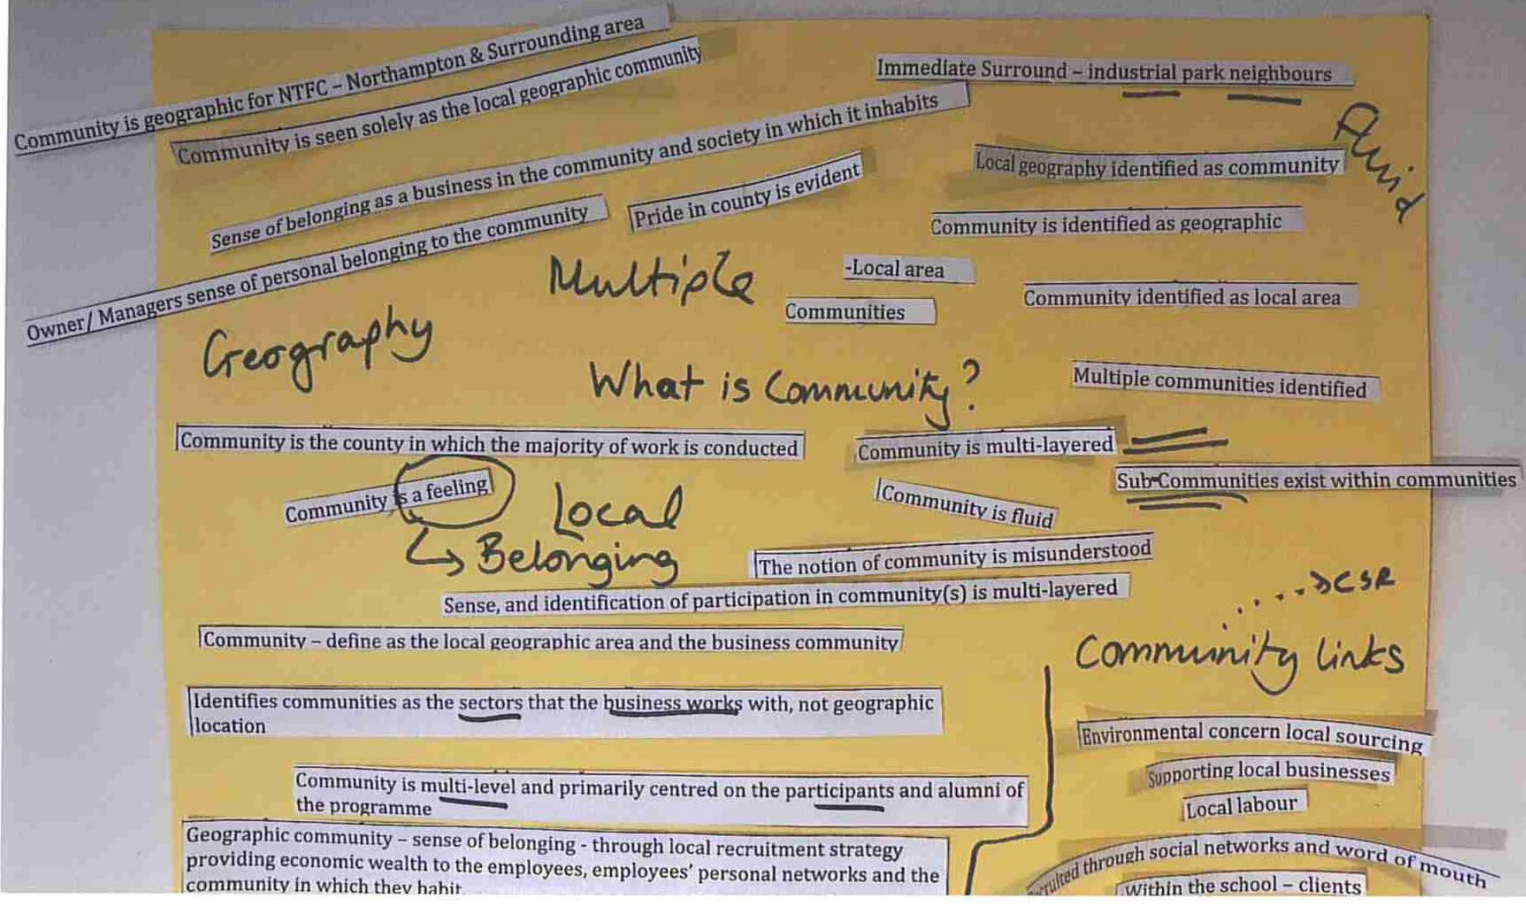 Community is geographic for NTFC – Northampton & Surrounding area
Community is seen solely as the local geographic community
Immediate Surround – industrial park neighbours
Fluid
Sense of belonging as a business in the community and society in which it inhabits
Local geography identified as community
Pride in county is evident
Community is identified as geographic
Owner/ Managers sense of personal belonging to the community
Multiple
-Local area
Communities
Community identified as local area
Geography
What is Community?
Multiple communities identified
Community is the county in which the majority of work is conducted
Community is multi-layered
Sub-Communities exist within communities
Community is a feeling
Local
Community is fluid
Belonging
The notion of community is misunderstood
Sense, and identification of participation in community(s) is multi-layered
CSR
Community – define as the local geographic area and the business community
Community links
Identifies communities as the sectors that the business works with, not geographic
location
Environmental concern local sourcing
Supporting local businesses
Local labour
Community is multi-level and primarily centred on the participants and alumni of
the programme
Geographic community – sense of belonging - through local recruitment strategy
providing economic wealth to the employees, employees' personal networks and the
community in which they habit
through social networks and word of mouth
within the school – clients